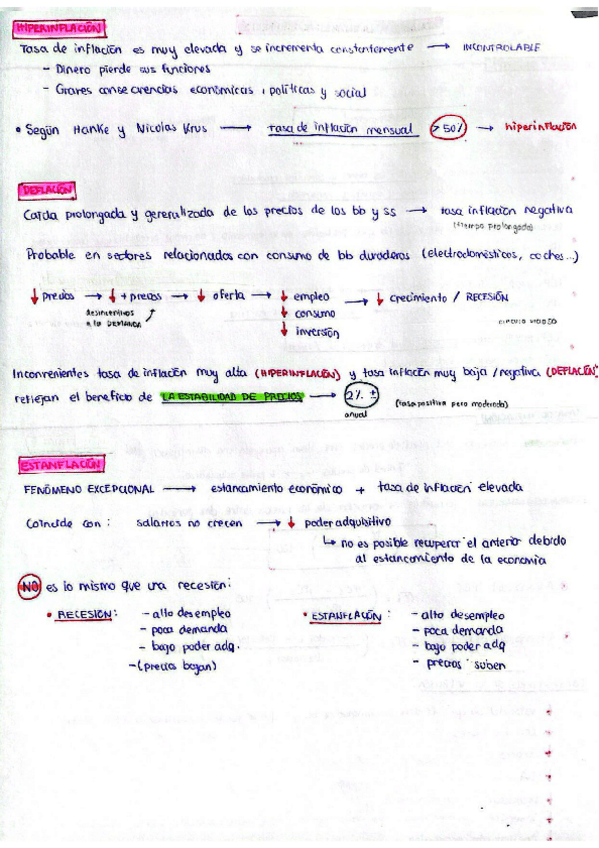 HIPERINFLACIÓN
Tasa de inflación es muy elevada y se incrementa constantemente → INCONTROLABLE
- Dinero pierde sus funciones
- Graves consecuencias económicas, políticas y social
• Según Hanke y Nicolas Krus → tasa de inflación mensual >50% → hiperinflación
DEFLACIÓN
Caída prolongada y generalizada de los precios de los bb y ss → tasa inflación negativa
(tiempo prolongado)
Probable en sectores relacionados con consumo de bb duraderos (electrodomésticos, coches...)
↓ precios → ↓ + precios → ↓ oferta → ↓ empleo → ↓ crecimiento / RECESIÓN
desincentivos ↓ consumo CÍRCULO VICIOSO
a la DEMANDA ↓ inversión
Inconvenientes tasa de inflación muy alta (HIPERINFLACIÓN) y tasa inflación muy baja / negativa (DEFLACIÓN)
reflejan el beneficio de LA ESTABILIDAD DE PRECIOS → 2% ± (tasa positiva pero moderada)
anual
ESTANFLACIÓN
FENÓMENO EXCEPCIONAL → estancamiento económico + tasa de inflación elevada
Coincide con: salarios no crecen → ↓ poder adquisitivo
↳ no es posible recuperar el anterior debido
al estancamiento de la economía
NO es lo mismo que una recesión:
• RECESIÓN: - alto desempleo • ESTANFLACIÓN: - alto desempleo
- poca demanda - poca demanda
- bajo poder adq. - bajo poder adq
- (precios bajan) - precios suben